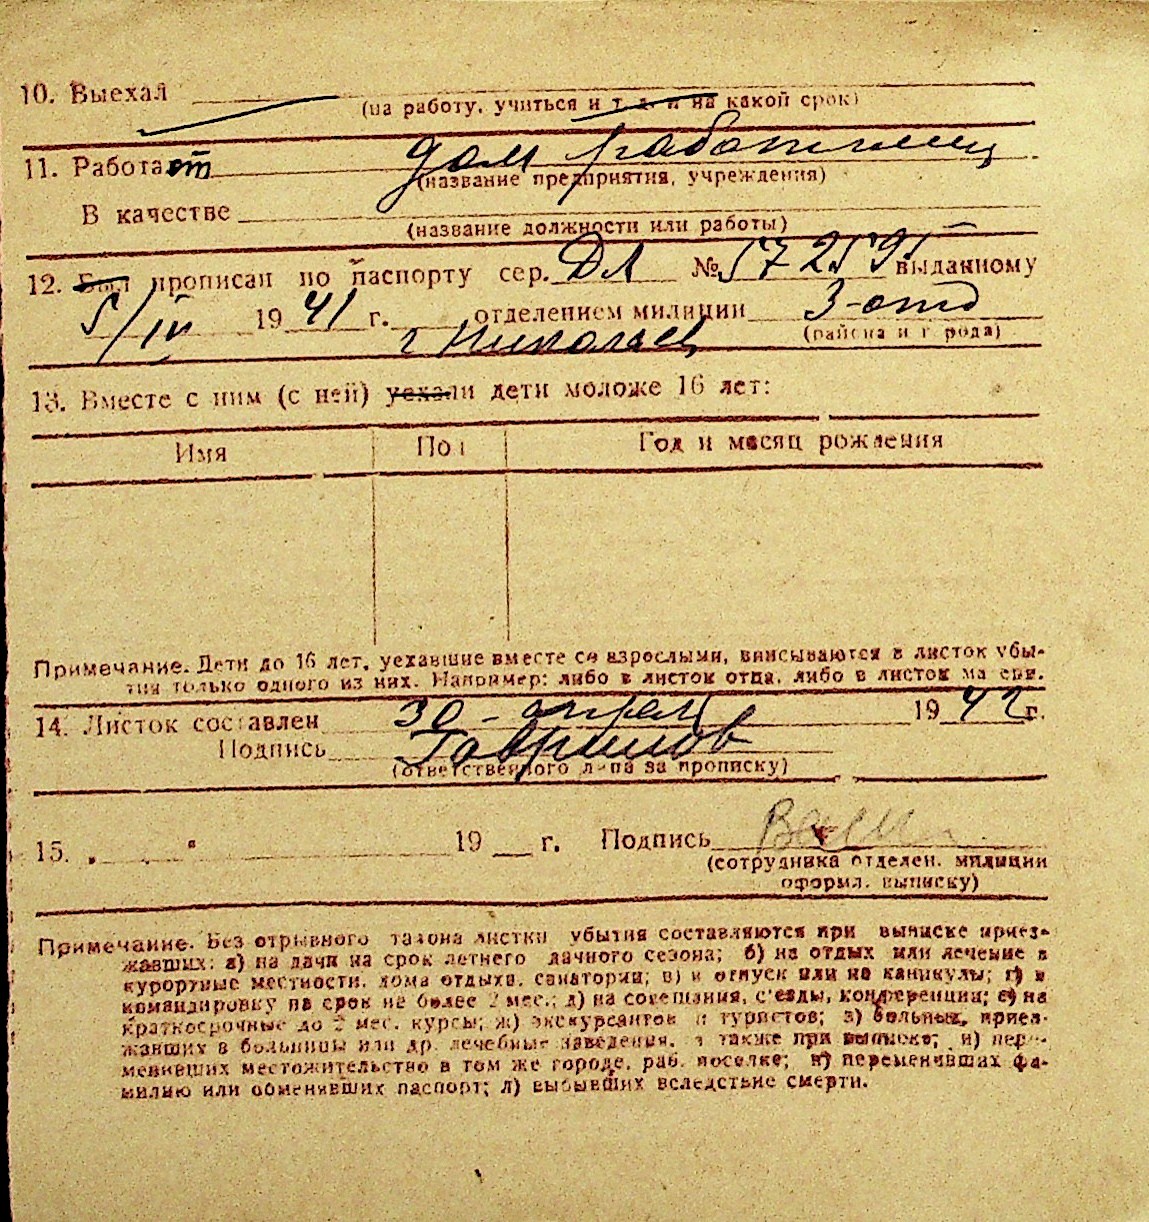 10. Выехал
(на работу, учиться и т. д. и на какой срок)
11. Работает дом работниц
(название предприятия, учреждения)
В качестве
(название должности или работы)
12. Был прописан по паспорту сер. ДЛ № 572595 выданному
5/IV 1941 г. отделением милиции 3-отд
г Николаев (района и города)
13. Вместе с ним (с ней) уехали дети моложе 16 лет:
Имя Пол Год и месяц рождения
Примечание. Дети до 16 лет, уехавшие вместе со взрослыми, вписываются в листок убы-
тия только одного из них. Например: либо в листок отца, либо в листок матери.
14. Листок составлен 30 - апрел 1942 г.
Подпись Гаврилов
(ответственного лица за прописку)
15. „ “ 19 г. Подпись
(сотрудника отделен. милиции
оформл. выписку)
Примечание. Без отрывного талона листки убытия составляются при выписке приез-
жавших: а) на дачи на срок летнего дачного сезона; б) на отдых или лечение в
курортные местности, дома отдыха, санатории; в) в отпуск или на каникулы; г) в
командировку на срок не более 2 мес.; д) на совещания, с'езды, конференции; е) на
краткосрочные до 2 мес. курсы; ж) экскурсантов и туристов; з) больных, приез-
жавших в больницы или др. лечебные заведения, а также при выписке; и) пере-
менивших местожительство в том же городе, раб. поселке; к) переменивших фа-
милию или обменивших паспорт; л) выбывших вследствие смерти.